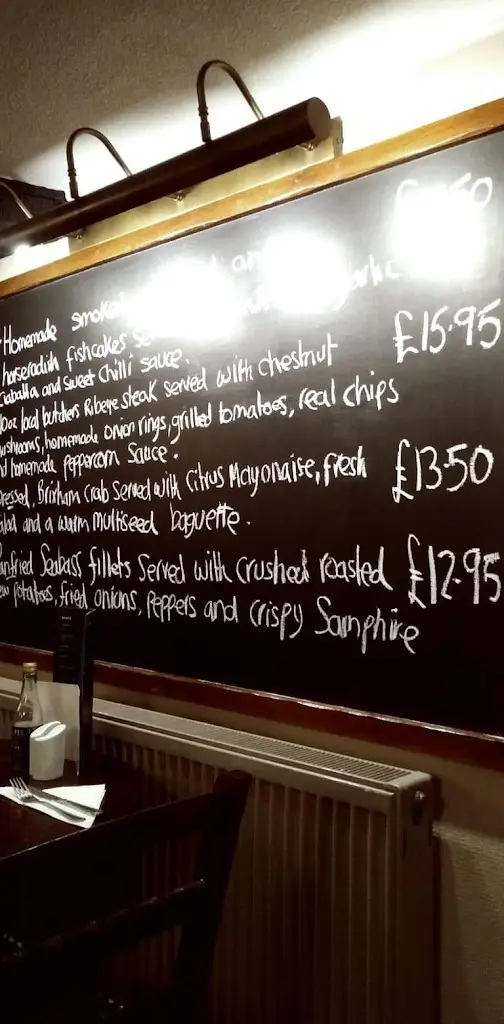 Homemade smoked and £ 50
horseradish fishcakes se garlic
ciabatta and sweet chilli sauce.
10oz local butchers Ribeye steak served with chestnut £15.95
mushrooms, homemade onion rings, grilled tomatoes, real chips
nd homemade peppercorn Sauce.
Dressed, Brixham Crab Served with Citrus Mayonaise, fresh £13.50
alad and a warm multiseed baguette.
anfried Seabass fillets Served with crushed roasted £12.95
ew potatoes, fried onions, Peppers and crispy Samphire